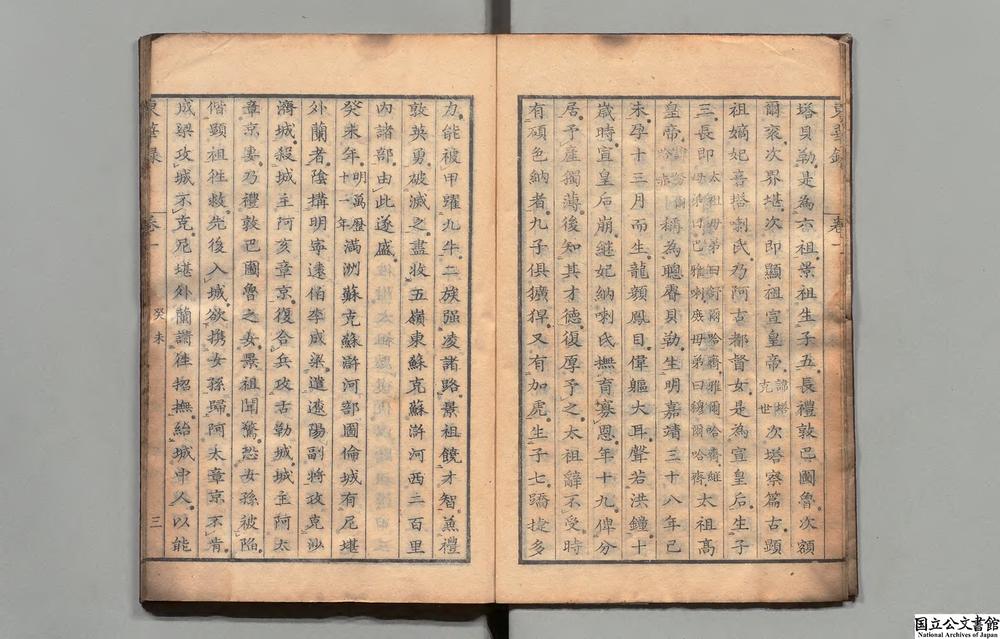 東華録 卷一
塔貝勒。是為古祖。景祖生子五。長禮敦巴圖魯。次額
爾衮。次界堪。次即顯祖宣皇帝。諱塔克世 次塔察篇古。顕
祖嫡妃喜塔喇氏。乃阿古都督女。是為宣皇后。生子
三。長即 太祖高
皇帝。 稱為聰睿貝勒。生明嘉靖三十八年己
未。孕十三月而生。龍顔鳳目。偉軀大耳。聲若洪鐘。十
歲時。宣皇后崩。繼妃納喇氏。撫育寡恩。年十九。俾分
居。予產獨薄。後知其才德。復厚予之。太祖辭不受。時
有碩色納者。九子俱獷猂。又有加虎。生子七。蹻捷多
力。能被甲躍九牛。二族强凌諸路。景祖饒才智。蒸禮
敦英勇。破滅之。盡收五嶺東蘇克蘇滸河西二百里
內諸部。由此遂盛。
癸未年。明萬歷十一年 滿洲蘇克蘇滸河部圖倫城有尼堪
外蘭者。陰搆明寧遠伯李成梁。遣遼陽副將攻克沙
濟城。殺城主阿亥章京。復合兵攻古勒城。城主阿太
章京妻。乃禮敦巴圖魯之女。景祖聞驚。恐女孫被陷。
偕顕祖徃救。先後入城。欲携女孫歸。阿太章京不肯。
成梁攻城不克。尼堪外蘭請徃招撫。紿城中人。以能
東華録 卷一 癸未 三
国立公文書館
National Archives of Japan